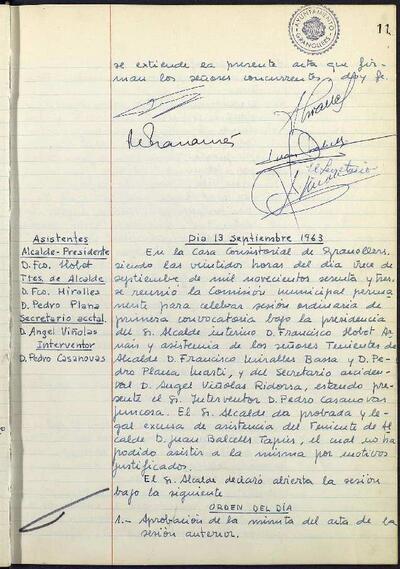 AYUNTAMIENTO
GRANOLLERS
11
se extiende la presente acta que fir-
man los señores concurrentes, doy fe.
El Secretario
Asistentes
Alcalde-Presidente
D. Fco. Llobet
Ttes. de Alcalde
D. Fco. Miralles
D. Pedro Plana
Secretario acctal.
D. Angel Viñolas
Interventor
D. Pedro Casanovas
Dia 13 Septiembre 1963
En la Casa Consistorial de Granollers,
siendo las veintidos horas del dia trece de
septiembre de mil novecientos sesenta y tres,
se reunió la Comisión municipal perma-
nente para celebrar sesión ordinaria de
primera convocatoria bajo la presidencia
del Sr. Alcalde interino D. Francisco Llobet Ar-
nán y asistencia de los señores Tenientes de
Alcalde D. Francisco Miralles Bassa y D. Pe-
dro Planas Martí, y del Secretario acciden-
tal D. Angel Viñolas Ridorsa, estando pre-
sente el Sr. Interventor D. Pedro Casanovas
Juncosa. El Sr. Alcalde da probada y le-
gal excusa de asistencia del Teniente de Al-
calde D. Juan Balcells Tapies, el cual no ha
podido asistir a la misma por motivos
justificados.
El Sr. Alcalde declaró abierta la sesión
bajo la siguiente
ORDEN DEL DÍA
1.- Aprobación de la minuta del acta de la
sesión anterior.